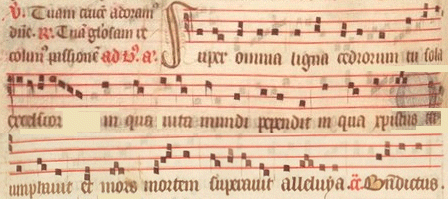 V. Tuam cruce adoram
dne. R. Tuā gliosam et
colim passionē ad b. a.
Super omnia ligna cedrorum tu sola
excelsior in qua uita mundi pependit in qua xpistus tri
umphauit et mors mortem superauit alleluya. cā. Bndictus.